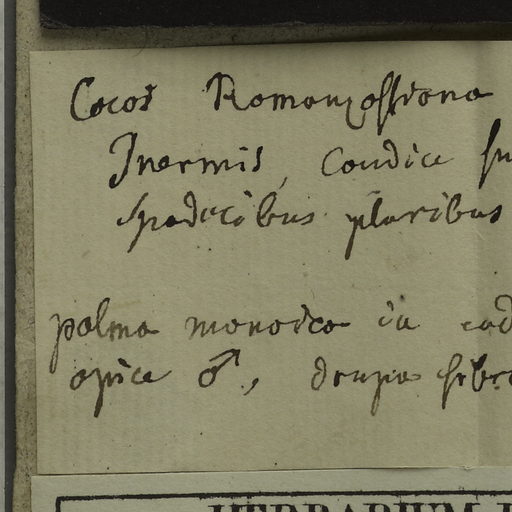 Cocos Romanzoffiana
Inermis, Caudice
spadicibus pluribus
palma monoica in
apice ♂, drupa fibro
HERBARIUM